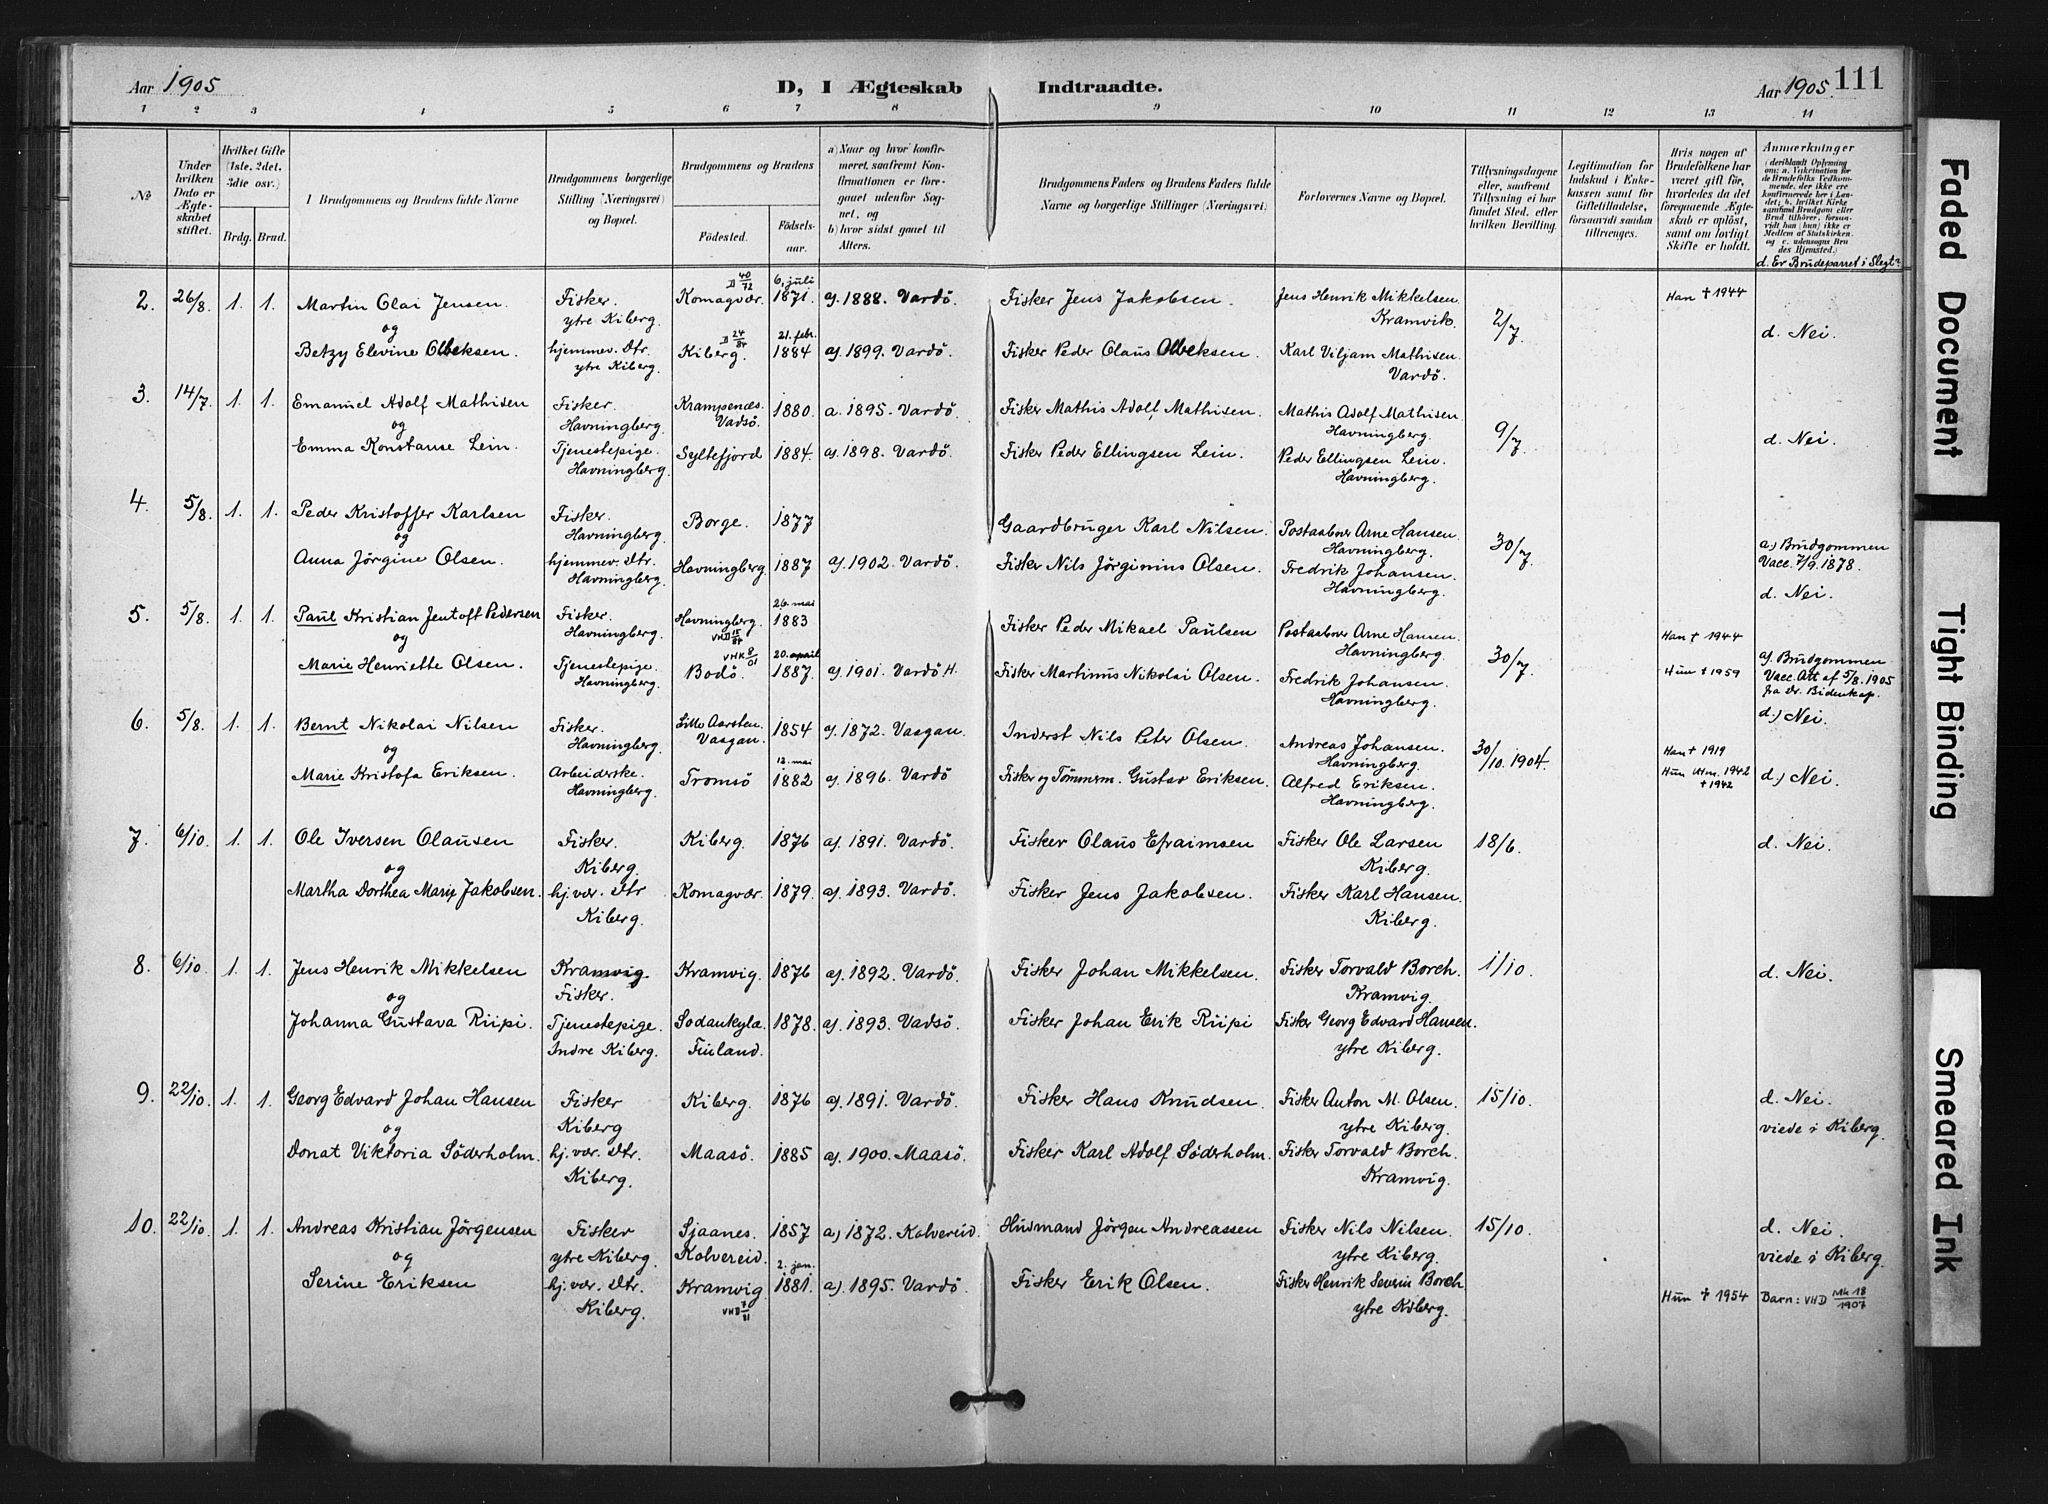 Aar 1905 D, I Ægteskab Indtraadte. Aar 1905. 111
1 2 3 4 5 6 7 8 9 10 11 12 13 14
№
Under hvilken Dato er Ægteskabet stiftet.
Hvilket Gifte (1ste, 2det, 3die osv.)
Brdg. Brud.
I Brudgommens og Brudens fulde Navne
Brudgommens borgerlige Stilling (Næringsvei) og Bopæl.
Brudgommens og Brudens
Fødested. Fødselsaar.
a) Naar og hvor konfirmeret, saafremt Konfirmationen er foregaaet udenfor Sognet, og
b) hvor sidst gaaet til Alters.
Brudgommens Faders og Brudens Faders fulde Navne og borgerlige Stillinger (Næringsvei)
Forlovernes Navne og Bopæl.
Tillysningsdagene eller, saafremt Tillysning ei har fundet Sted, efter hvilken Bevilling.
Legitimation for Indskud i Enkekassen samt for Giftetilladelse, forsaavidt saadan tiltrænges.
Hvis nogen af Brudefolkene har været gift før, hvorledes da det foregaaende Ægteskab er opløst, samt om lovligt Skifte er holdt.
Anmerkninger
(deriblandt Oplysning om: a. Vakcination for de Brudefolks Vedkommende, der ikke ere konfirmerede her i Landet; b. hvilket Kirkesamfund Brudgom eller Brud tilhører, forsaavidt han (hun) ikke er Medlem af Statskirken og c. udensogns Brudes Hjemsted.)
d. Er Brudeparret i Slegt?
D 40/72 6. juli
2. 26/8 1. 1. Martin Olai Jensen Fisker. Komagvær 1871. a). 1888. Vardö. Fisker Jens Jakobsen. Jens Henrik Mikkelsen Han † 1944
og ytre Kiberg. D 24/84 21. febr. Kramvik. 2/7 d. Nei.
Betzy Elevine Olbeksen. hjemmev. Dtr. Kiberg. 1884 a). 1899. Vardö. Fisker Peder Olaus Olbeksen. Karl Viljam Mathisen
ytre Kiberg. Vardö.
3. 14/7 1. 1. Emanuel Adolf Mathisen Fisker. Krampenæs. 1880. a. 1895. Vardö. Fisker Mathis Adolf Mathisen. Mathis Adolf Mathisen
og Havningberg. Vadsö. Havningberg. 9/7 d. Nei.
Emma Konstanse Lein. Tjenestepige. Syltefjord 1884. a). 1898. Vardö. Fisker Peder Ellingsen Lein. Peder Ellingsen Lein.
Havningberg. Havningberg.
4. 5/8. 1. 1. Peder Kristoffer Karlsen Fisker. Borge. 1877 Gaardbruger Karl Nilsen. Postaabner Arne Hansen.
og Havningberg. Havningberg. 30/7 a.) Brudgommen
Anna Jörgine Olsen. hjemmev. Dtr. Havningberg. 1887 a). 1902. Vardö. Fisker Nils Jörginius Olsen. Fredrik Johansen. Vacc. 7/9. 1878.
Havningberg. Havningberg. d. Nei.
26. mai
5. 5/8. 1 1. Paul Kristian Jentoft Pedersen Fisker. Havningberg. 1883 Fisker Peder Mikael Paulsen Postaabner Arne Hansen. Han † 1944
og Havningberg. VHD 15/84 Havningberg.
VHK 8/01 20. april
Marie Henriette Olsen. Tjenestepige. Bodö. 1887. a). 1901. Vardö H. Fisker Martinus Nikolai Olsen. Fredrik Johansen. 30/7 Hun † 1959 a). Brudgommen
Havningberg. Havningberg. Vacc. Att af 5/8. 1905
fra dr. Bidenkap.
d.) Nei.
6. 5/8. 1 1. Bernt Nikolai Nilsen Fisker. Lille Aarsten. 1854 a). 1872. Vaagan. Inderst Nils Peter Olsen. Andreas Johansen. 30/10. 1904. Han † 1919
og Havningberg. Vaagan. 12. mai Havningberg.
Marie Kristofa Eriksen. Arbeiderske. Tromsö 1882 a). 1896. Vardö Fisker og Tömmerm. Gustav Eriksen. Alfred Eriksen. Hun 1942 d.) Nei.
Havningberg. Havningberg. † 1942
7. 6/10. 1 1. Ole Iversen Olausen Fisker. Kiberg. 1876 a). 1891. Vardö. Fisker Olaus Efraimsen Fisker Ole Larsen 18/6. d. Nei.
og Kiberg. Kiberg.
Martha Dorthea Marie Jakobsen. hj. vær. Dtr Komagvær. 1879. a). 1893. Vardö. Fisker Jens Jakobsen. Fisker Karl Hansen.
Kiberg. Kiberg.
8. 6/10. 1. 1. Jens Henrik Mikkelsen Kramvig Kramvig. 1876 a). 1892. Vardö. Fisker Johan Mikkelsen. Fisker Torvald Borch. 1/10. d. Nei.
og Fisker. Kramvig.
Johanna Gustava Riipi. Tjenestepige. Sodankylæ 1878. a). 1893. Vadsö. Fisker Johan Erik Riipi Fisker Georg Edvard Hansen.
Indre Kiberg. Finland. ytre Kiberg.
9. 22/10. 1. 1. Georg Edvard Johan Hansen Fisker Kiberg. 1876 a). 1891. Vardö. Fisker Hans Knudsen. Fisker Anton M. Olsen. 15/10. d. Nei.
og Kiberg ytre Kiberg. viede i Kiberg.
Donat Viktoria Söderholm. hj. vær. Dtr. Maasö. 1885 a). 1900. Maasö. Fisker Karl Adolf Søderholm. Fisker Torvald Borch.
Kiberg. Kramvig.
10. 22/10. 1. 1. Andreas Kristian Jörgensen Fisker Sjaanes. 1857 a) 1872. Kolvereid. Husmand Jörgen Andreassen Fisker Nils Nilsen. 15/10. d. Nei.
og ytre Kiberg. Kolvereid. 2. jan. ytre Kiberg. viede i Kiberg.
Serine Eriksen hj. vær. Dtr. Kramvig 1881. a). 1895. Vardö. Fisker Erik Olsen. Fisker Henrik Severin Borch
Kiberg. VHD 7/81 ytre Kiberg. Hun † 1954 Barn: VHD Mk 18/1907
Faded Document
Tight Binding
Smeared Ink